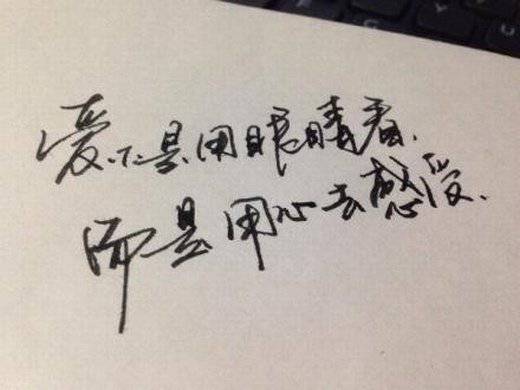 爱不是用眼睛看.
而是用心去感受.